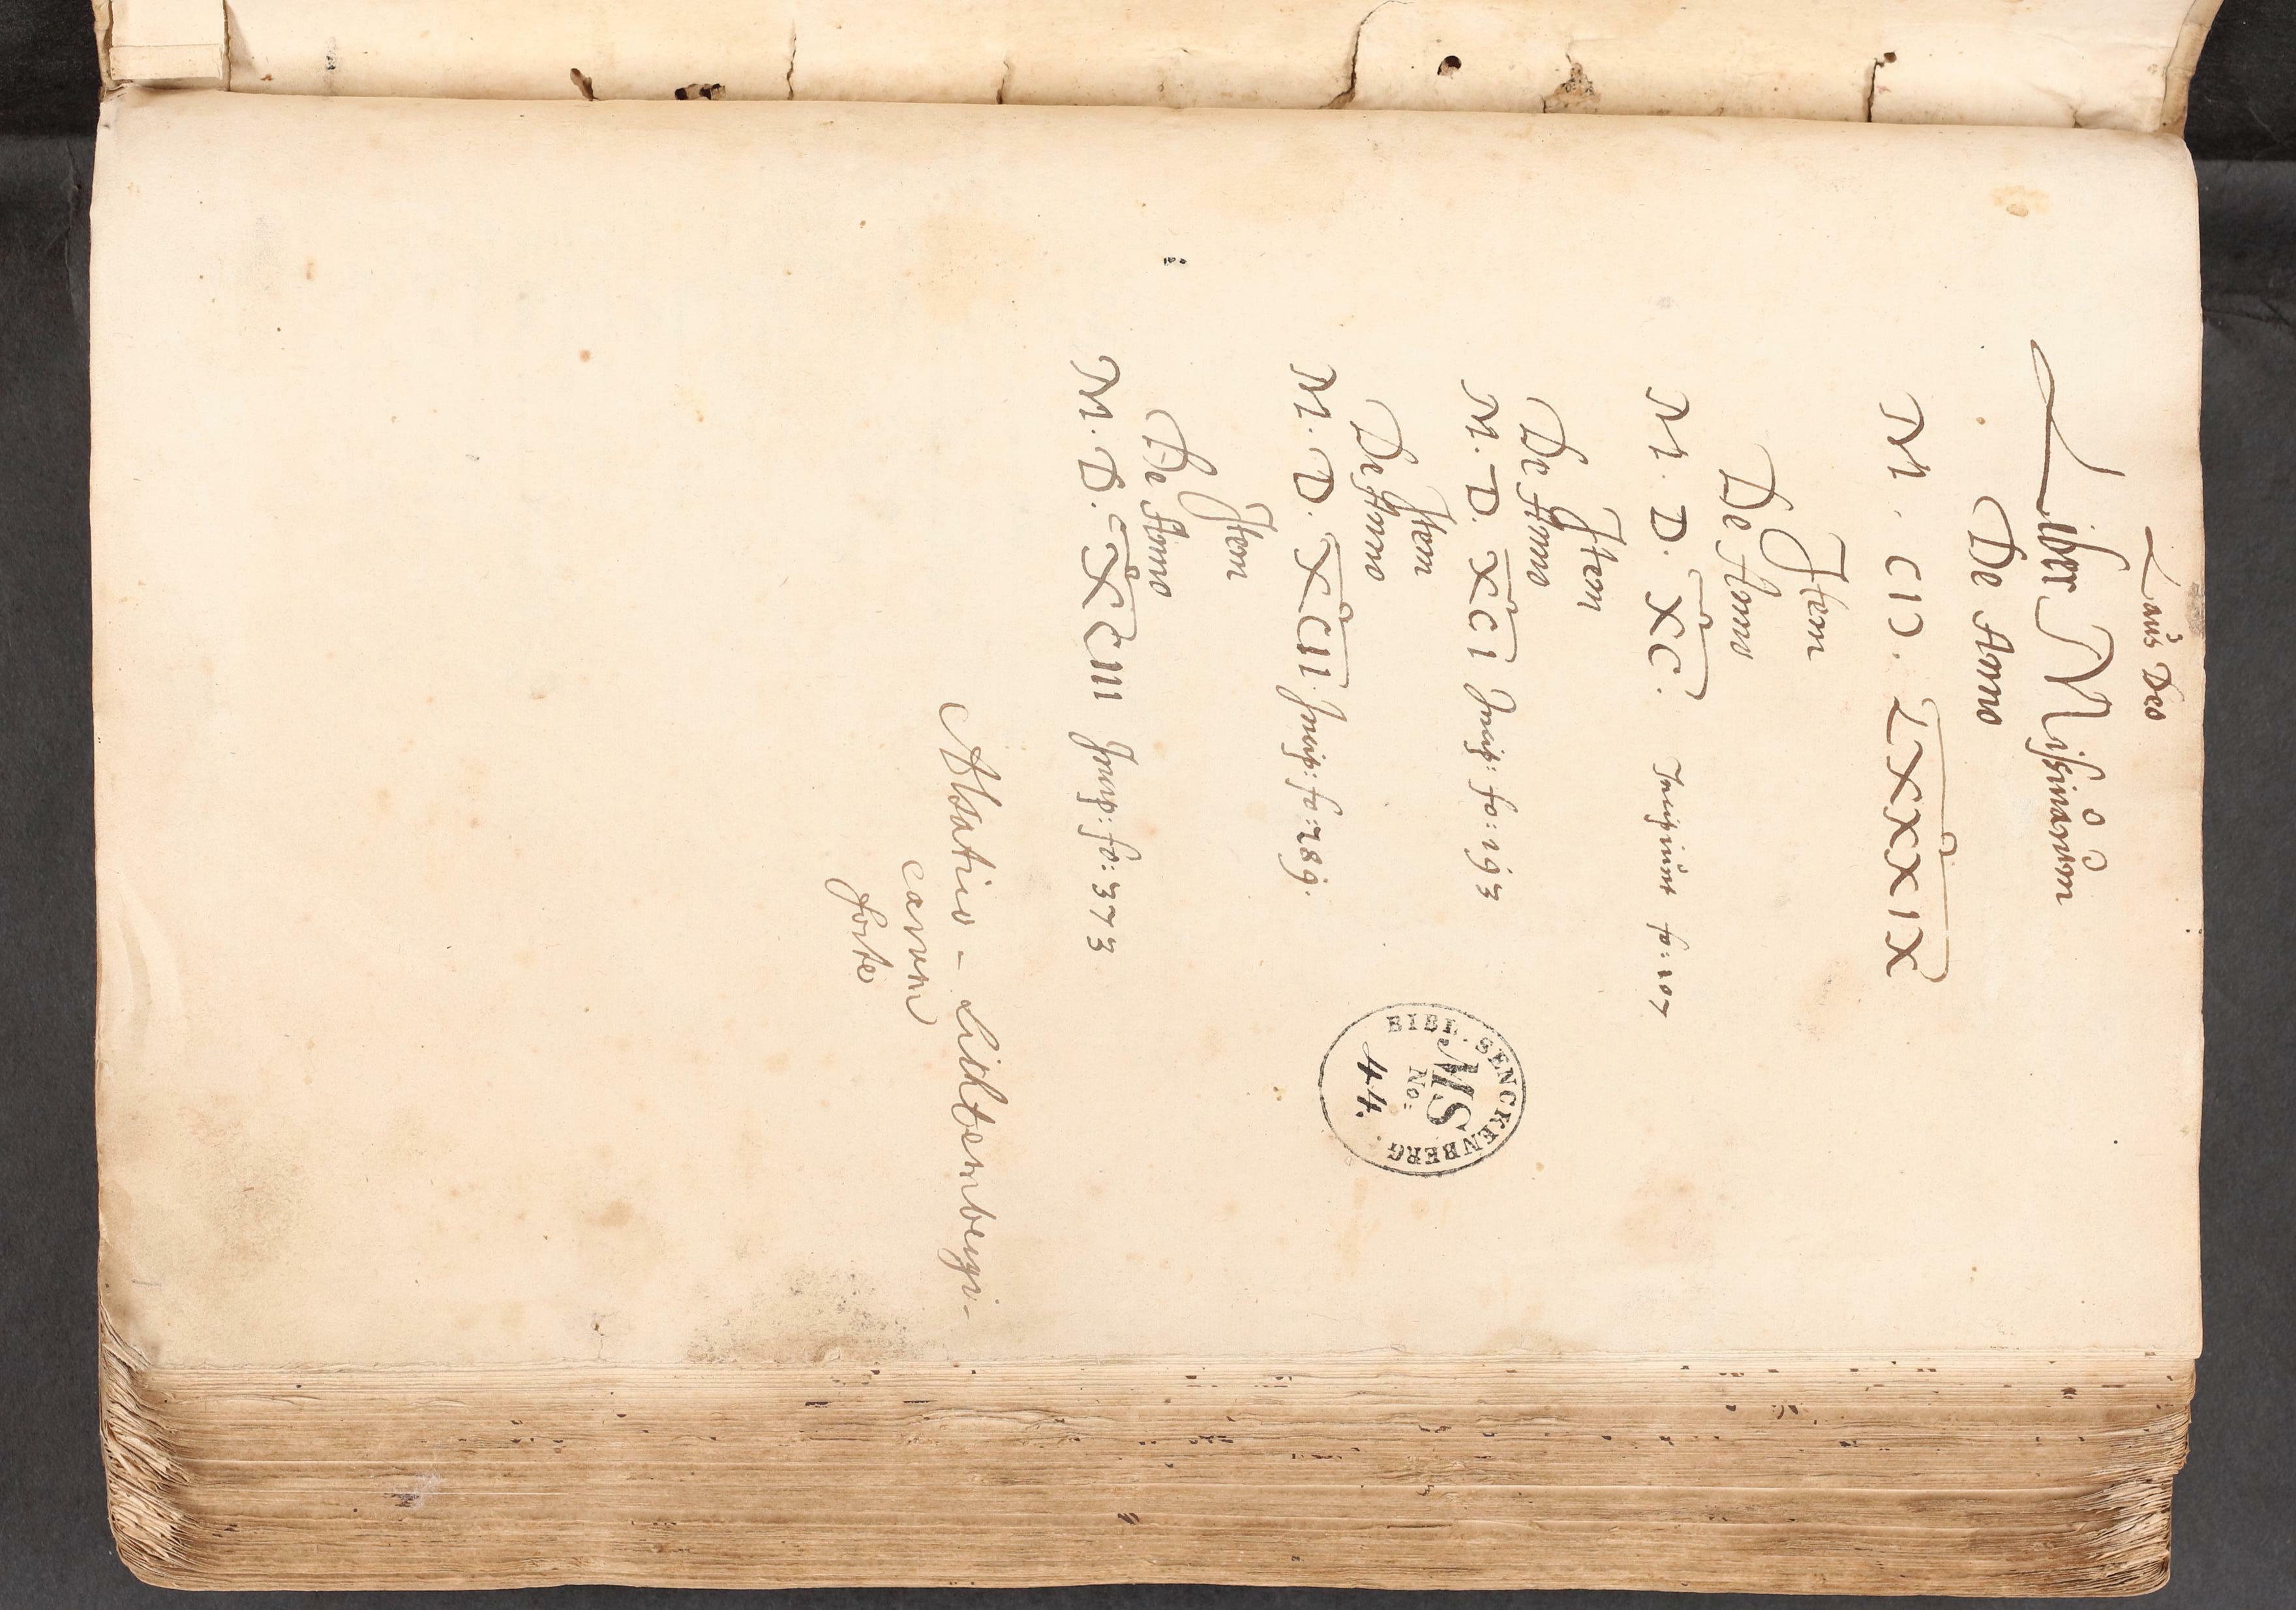 Laus Deo
Liber Missivarum
De Anno
M. CIↃ. LXXXIX
Item
De Anno
M. D. XC. Incipiunt fo: 107
Item
De Anno
M. D. XCI Incip: fo: 193
Item
De Anno
M. D. XCII. Incip: fo: 289.
Item
De Anno
M. D. XCIII Incip: fo: 373
Alsatico-Lichtenbergi-
carum
forte
BIBL. SENCKENBERG.
MS
No:
44.